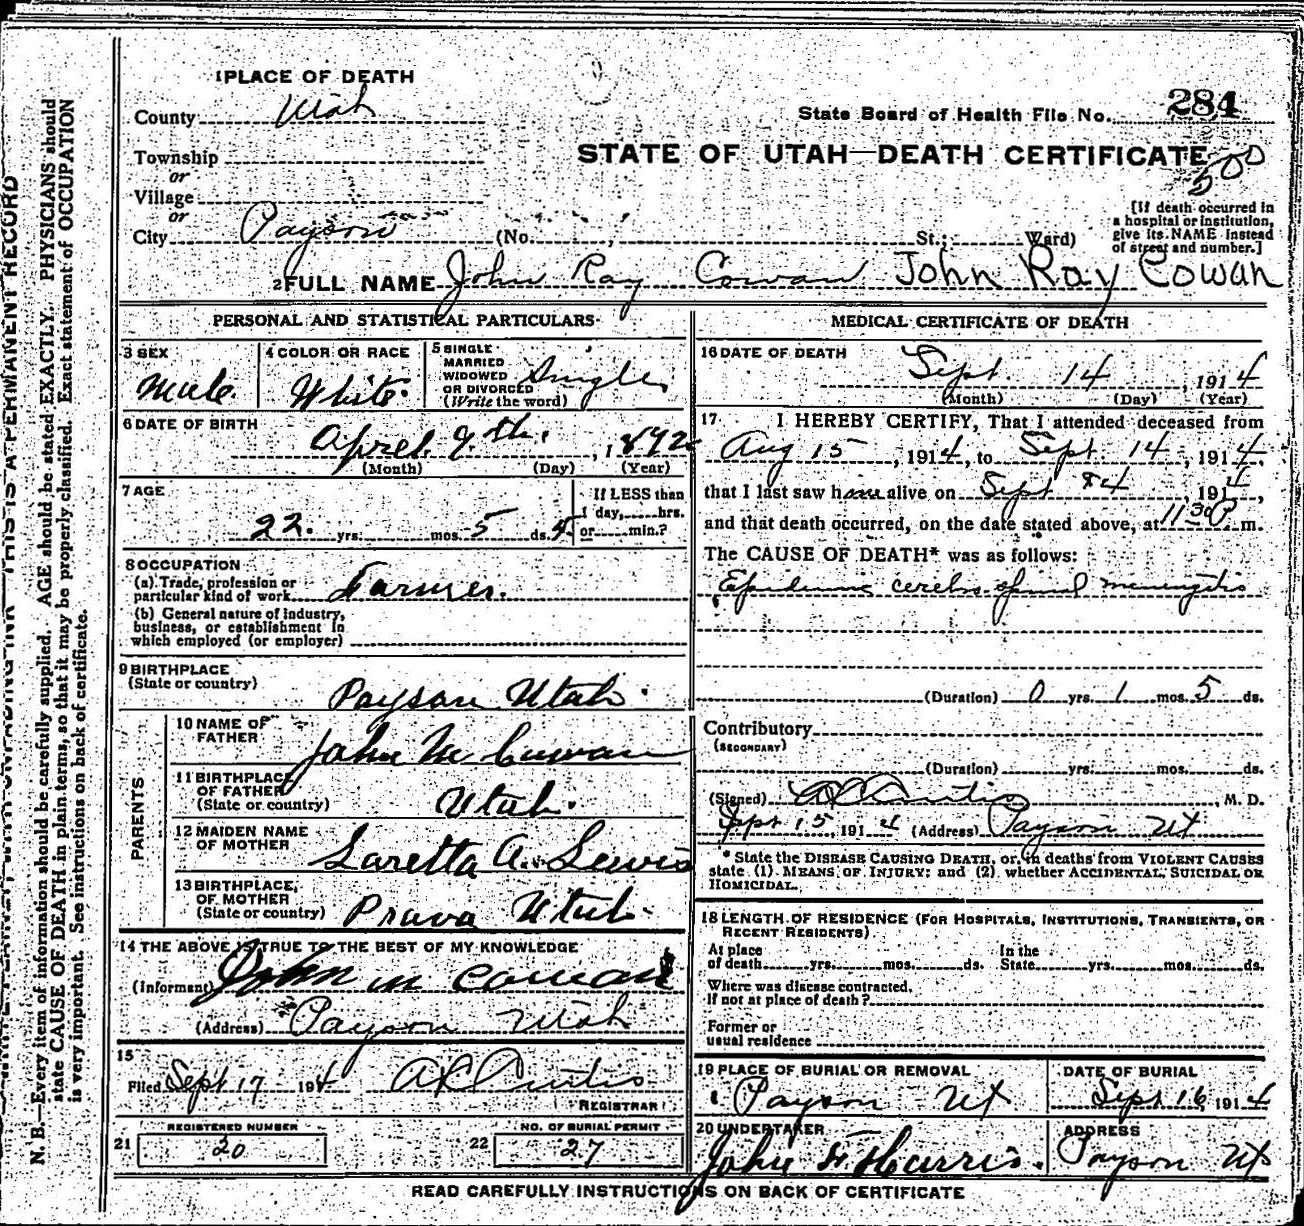 1 PLACE OF DEATH
County Utah
State Board of Health File No. 284
STATE OF UTAH—DEATH CERTIFICATE
500
Township
or
Village
or
City Payson (No. , St.; Ward)
[If death occurred in
a hospital or institution,
give its NAME instead
of street and number.]
2 FULL NAME John Ray Cowan John Ray Cowan
PERSONAL AND STATISTICAL PARTICULARS
3 SEX
Male.
4 COLOR OR RACE
White.
5 SINGLE
MARRIED
WIDOWED
OR DIVORCED
(Write the word)
Single
6 DATE OF BIRTH
April. 9. th. , 1892
(Month) (Day) (Year)
7 AGE
22. yrs. mos. 5 ds. 5.
If LESS than
1 day, hrs.
or min.?
8 OCCUPATION
(a) Trade, profession or
particular kind of work Farmer.
(b) General nature of industry,
business, or establishment in
which employed (or employer)
9 BIRTHPLACE
(State or country)
Payson Utah.
PARENTS
10 NAME OF
FATHER
John M Cowan
11 BIRTHPLACE
OF FATHER
(State or country)
Utah.
12 MAIDEN NAME
OF MOTHER
Laretta A. Lewis
13 BIRTHPLACE,
OF MOTHER
(State or country)
Provo Utah.
14 THE ABOVE IS TRUE TO THE BEST OF MY KNOWLEDGE
(Informant) John M Cowan
(Address) Payson Utah
15
Filed Sept 17 1914 A L Curtis
REGISTRAR
21 REGISTERED NUMBER
20
22 NO. OF BURIAL PERMIT
27
MEDICAL CERTIFICATE OF DEATH
16 DATE OF DEATH
Sept. 14 , 1914
(Month) (Day) (Year)
17 I HEREBY CERTIFY, That I attended deceased from
Aug 15 , 1914, to Sept 14 , 1914,
that I last saw him alive on Sept , 1914,
and that death occurred, on the date stated above, at 11 30 P m.
The CAUSE OF DEATH* was as follows:
Epidemic cerebro spinal meningitis
(Duration) 0 yrs. 1 mos. 5 ds.
Contributory
(SECONDARY)
(Duration) yrs. mos. ds.
(Signed) A L Curtis , M. D.
Sept 15, 1914 (Address) Payson Ut
* State the DISEASE CAUSING DEATH, or, in deaths from VIOLENT CAUSES
state (1) MEANS OF INJURY; and (2) whether ACCIDENTAL, SUICIDAL OR
HOMICIDAL.
18 LENGTH OF RESIDENCE (FOR HOSPITALS, INSTITUTIONS, TRANSIENTS, OR
RECENT RESIDENTS)
At place
of death yrs. mos. ds.
In the
State yrs. mos. ds.
Where was disease contracted,
If not at place of death?
Former or
usual residence
19 PLACE OF BURIAL OR REMOVAL
Payson Ut
DATE OF BURIAL
Sept 16, 1914
20 UNDERTAKER
John F Harris.
ADDRESS
Payson Ut
READ CAREFULLY INSTRUCTIONS ON BACK OF CERTIFICATE
THIS IS A PERMANENT RECORD
N. B.—Every item of information should be carefully supplied. AGE should be stated EXACTLY. PHYSICIANS should
state CAUSE OF DEATH in plain terms, so that it may be properly classified. Exact statement of OCCUPATION
is very important. See instructions on back of certificate.